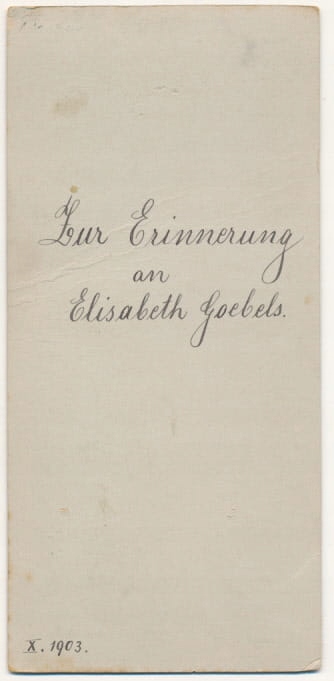 Zur Erinnerung
an
Elisabeth Goebels.
X. 1903.